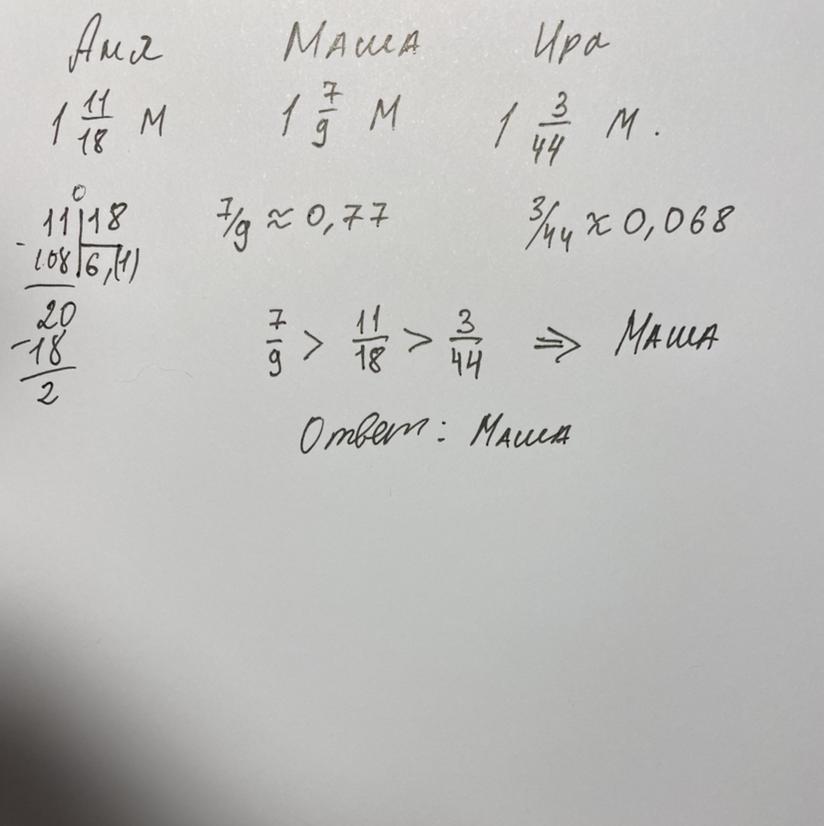 Аня Маша Ира
1 11/18 м 1 7/9 м 1 3/44 м.
0
11 | 18 7/9 ≈ 0,77 3/44 ≈ 0,068
- 108 | 6,(1)
20
- 18
2
7/9 > 11/18 > 3/44 ⇒ Маша
Ответ: Маша